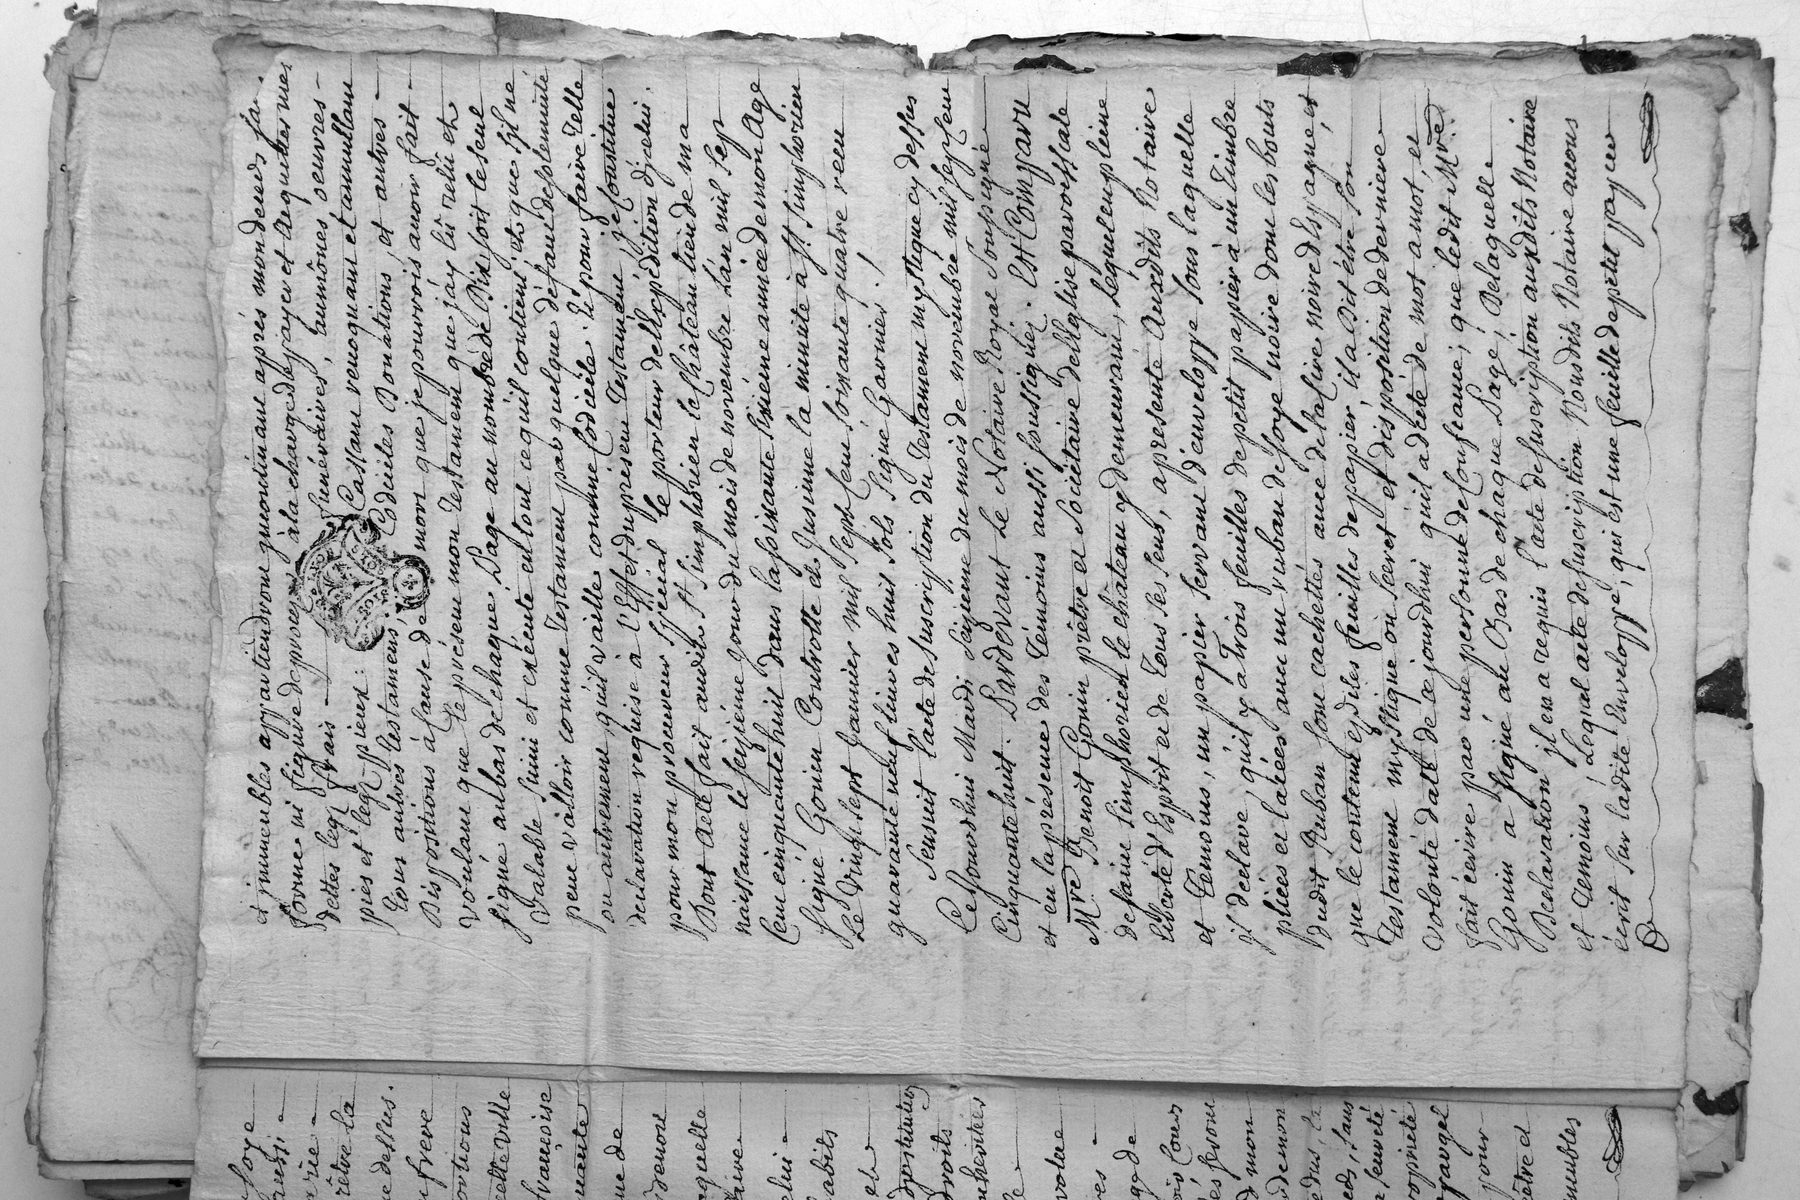 et immeubles appartiendront quoistinant aprés mondeces sa
forme ni figure de procés, ala charge de payer et acquiter mes
dettes legs frais funéraires, aumônes oeuvres
pies et legs pieux. Cassant revoquant et annullant
tous autres testamens, Codiciles Donations, et autres
Dispositions à cause de mort que je pourrois avoir fait
voulant que le présent mon testament que jay lû relû et
signé au bas de chaque Page au nombre de Dix soit le seul
valable suivi et exécuté en tout ce quil contient, et que s'il ne
peut valloir comme testament par quelque défaut de solemnité
ou autrement qu'il vaille comme Codicile Et pour faire telle
declaration requise à l'Effet du present testament je Constitue
pour mon procureur spécial le porteur de l'Expédition d'jcelui.
Dont Acte fait audit St. Simphorien le Château lieu de ma
naissance le seizième jour du mois de novembre L'an mil sep
Cent cinquante huit dans la soixante sixième année de mon Age
signé Gonin Controllé et Insinué la minute à St. Simphorien
Le Vingt sept Janvier mil sept Cent soixante quatre reçu
quarante neuf livres huit sols signé Garnier /
Sensuit l'acte de suscription du testament mystique cy dessus
Ce Jourdhui Mardi seizieme du mois de novembre mil sept cent
Cinquante huit. Pardevant Le Notaire Royal soussigné
et en la présence des témoins aussi soussignés. Est Comparu
Mre. Benoit Gonin prêtre et Sociétaire de l'Eglise paroissiale
de saint Simphorien le château y demeurant, Lequel en pleine
liberté d'Esprit et de tous ses sens, a presenté Auxdits Notaire
et temoins, un papier servant d'enveloppe sous laquelle
il declare, qu'il y a trois feuilles de petit papier à un timbre
pliées et lacées avec un ruban de soye noire dont les bouts
dudit Ruban sont cachetés avec de la cire noire d'Espagne, et
que le contenu esdites feuilles de papier, il a Dit être son
testament mystique ou secret et disposition de derniere
volonté daté de ce jourdhui quil a dicté de mot a mot, et
fait écrire par une personne de Confiance; que ledit Mre.
Gonin a signé au Bas de chaque Page, De laquelle
Declaration il en a requis l'acte de suscription auxdits Notaire
et temoins, Lequel acte de suscription Nousdits Notaire avons
écrit sur ladite Enveloppe, qui est une feuille de petit papier
soye
aussi
rêtre la
dessus.
frere
cette ville
françoise
aquelle
droits
volue
mon
demon
propriété
pour